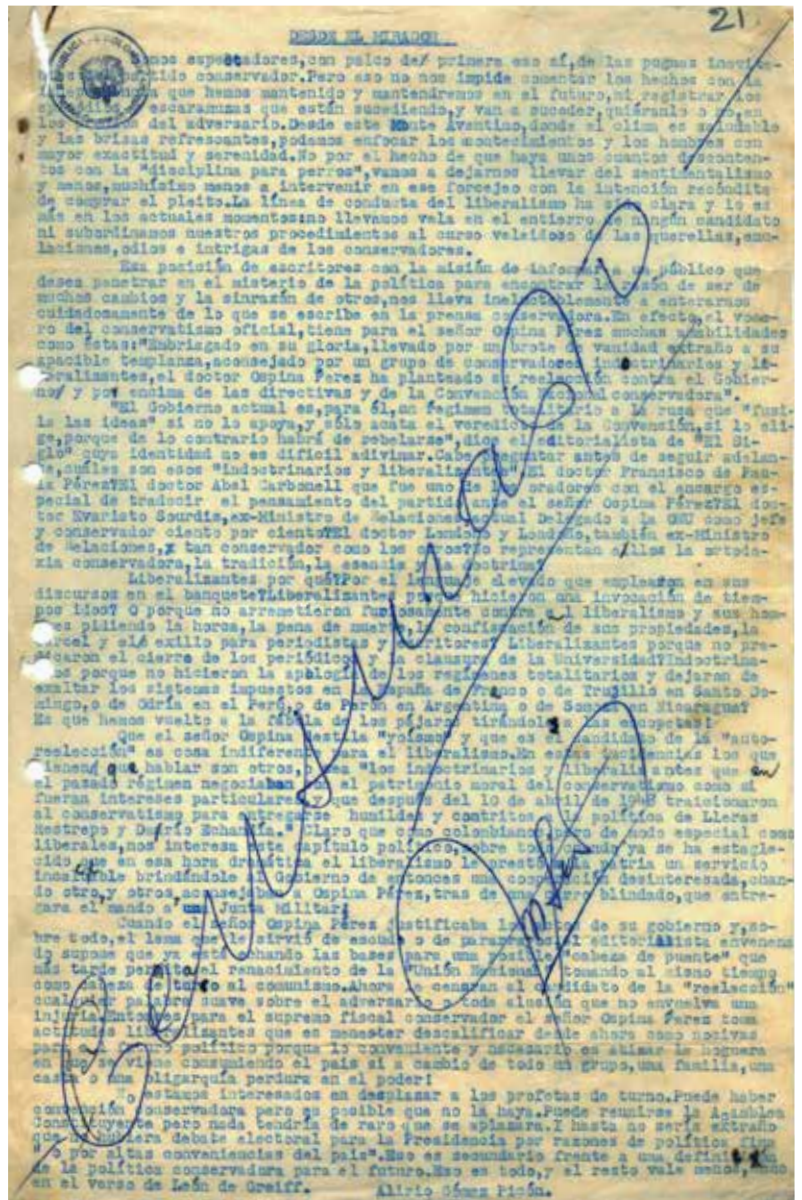 21.
DESDE EL MIRADOR
mos espectadores,con palco de/ primera eso sí,de las pugnas inevita-
partido conservador.Pero eso no nos impide comentar los hechos con la
que hemos mantenido y mantendremos en el futuro,ni registrar los
escaramuzas que están sucediendo,y van a suceder,quiéranlo o no,en
los del adversario.Desde este Monte Aventino,donde el clima es saludable
y las brisas refrescantes,podemos enfocar los acontecimientos y los hombres con
mayor exactitud y serenidad.No por el hecho de que haya unos cuantos desconten-
tos con la "disciplina para perros",vamos a dejarnos llevar del sentimentalismo
y menos,muchísimo menos a intervenir en ese forcejeo con la intención recóndita
de comprar el pleito.La línea de conducta del liberalismo ha sido clara y lo es
más en los actuales momentos:no llevamos vela en el entierro de ningún candidato
ni subordinamos nuestros procedimientos al curso veleidoso de las querellas,emu-
laciones,odios e intrigas de los conservadores.
Esa posición de escritores con la misión de informar a un público que
desea penetrar en el misterio de la política para encontrar la razón de ser de
muchos cambios y la sinrazón de otros,nos lleva ineluctablemente a enterarnos
cuidadosamente de lo que se escribe en la prensa conservadora.En efecto,el voce-
ro del conservatismo oficial,tiene para el señor Ospina Pérez muchas amabilidades
como éstas:"Embriagado en su gloria,llevado por un brote de vanidad extraño a su
apacible templanza,aconsejado por un grupo de conservadores indoctrinarios y li-
beralizantes,el doctor Ospina Pérez ha planteado la reelección contra el Gobier-
no/ y por encima de las directivas y de la Convención Nacional conservadora".
"El Gobierno actual es,para él,un régimen totalitario a la rusa que "fusi-
la las ideas" si no lo apoya,y sólo acata el veredicto de la Convención,si lo eli-
ge,porque de lo contrario habrá de rebelarse",dice el editorialista de "El Si-
glo" cuya identidad no es difícil adivinar.Cabe preguntar antes de seguir adelan-
te,cuáles son esos "indoctrinarios y liberalizantes".El doctor Francisco de Pau-
la Pérez?El doctor Abel Carbonell que fue uno de los oradores con el encargo es-
pecial de traducir el pensamiento del partido ante el señor Ospina Pérez?El doc-
tor Evaristo Sourdis,ex-Ministro de Relaciones,actual Delegado a la ONU como jefe
y conservador ciento por ciento?El doctor Londoño y Londoño,también ex-Ministro
de Relaciones,y tan conservador como los otros?No representan ellos la ortodo-
xia conservadora,la tradición,la esencia y la doctrina?
Liberalizantes por qué?Por el lenguaje elevado que emplearon en sus
discursos en el banquete?Liberalizantes porque hicieron una invocación de tiem-
pos idos? O porque no arremetieron furiosamente contra el liberalismo y sus hom-
bres pidiendo la horca,la pena de muerte,la confiscación de sus propiedades,la
cárcel y el/ exilio para periodistas y escritores? Liberalizantes porque no pre-
dicaron el cierre de los periódicos y la clausura de la Universidad?Indoctrina-
rios porque no hicieron la apología de los regímenes totalitarios y dejaron de
exaltar los sistemas impuestos en la España de Franco o de Trujillo en Santo Do-
mingo,o de Odría en el Perú,o de Perón en Argentina o de Somoza en Nicaragua?
Es que hemos vuelto a la fábula de los pájaros tirándole a las escopetas!
Que el señor Ospina destila "yoismo" y que es el candidato de la "auto-
reelección" es cosa indiferente para el liberalismo.En estas incidencias los que
tienen/ que hablar son otros,o sea "los indoctrinarios y liberalizantes que en
el pasado régimen negociaban el patrimonio moral del conservatismo como si
fueran intereses particulares,y que después del 10 de abril de 1948 traicionaron
al conservatismo para entregarse humildes y contritos a la política de Lleras
Restrepo y Darío Echandía." Claro que como colombianos,y de modo especial como
liberales,nos interesa este capítulo político,sobre todo cuando ya se ha estable-
cido que en esa hora dramática el liberalismo le prestó a la patria un servicio
brindándole al Gobierno de entonces una cooperación desinteresada,cuan-
do otro,y otros,aconsejaban a Ospina Pérez,tras de un carro blindado,que entre-
gara el mando a una Junta Militar!
Cuando el señor Ospina Pérez justificaba la de su gobierno y,so-
bre todo,el lema que le sirvió de escudo o de paraguas,el editorialista envenena
do supone que ya está echando las bases para una posible "cabeza de puente" que
más tarde permita el renacimiento de la "Unión Nacional",tomando al mismo tiempo
como cabeza de turco al comunismo.Ahora le censuran al candidato de la "reelección"
cualquier palabra suave sobre el adversario o toda alusión que no envuelva una
injuria.Entonces para el supremo fiscal conservador el señor Ospina Pérez toma
actitudes liberalizantes que es menester descalificar desde ahora como nocivas
para el futuro político porque lo conveniente y necesario es atizar la hoguera
en que se viene consumiendo el país si a cambio de todo un grupo,una familia,una
casta o una oligarquía perdura en el poder!
No estamos interesados en desplazar a los profetas de turno.Puede haber
convención conservadora pero es posible que no la haya.Puede reunirse la Asamblea
Constituyente pero nada tendría de raro que se aplazara.Y hasta no sería extraño
que no hubiera debate electoral para la Presidencia por razones de política
"o por altas conveniencias del país".Eso es secundario frente a una definición
de la política conservadora para el futuro.Eso es todo,y el resto vale menos,como
en el verso de León de Greiff.
Alirio Gómez Picón.
Censurado